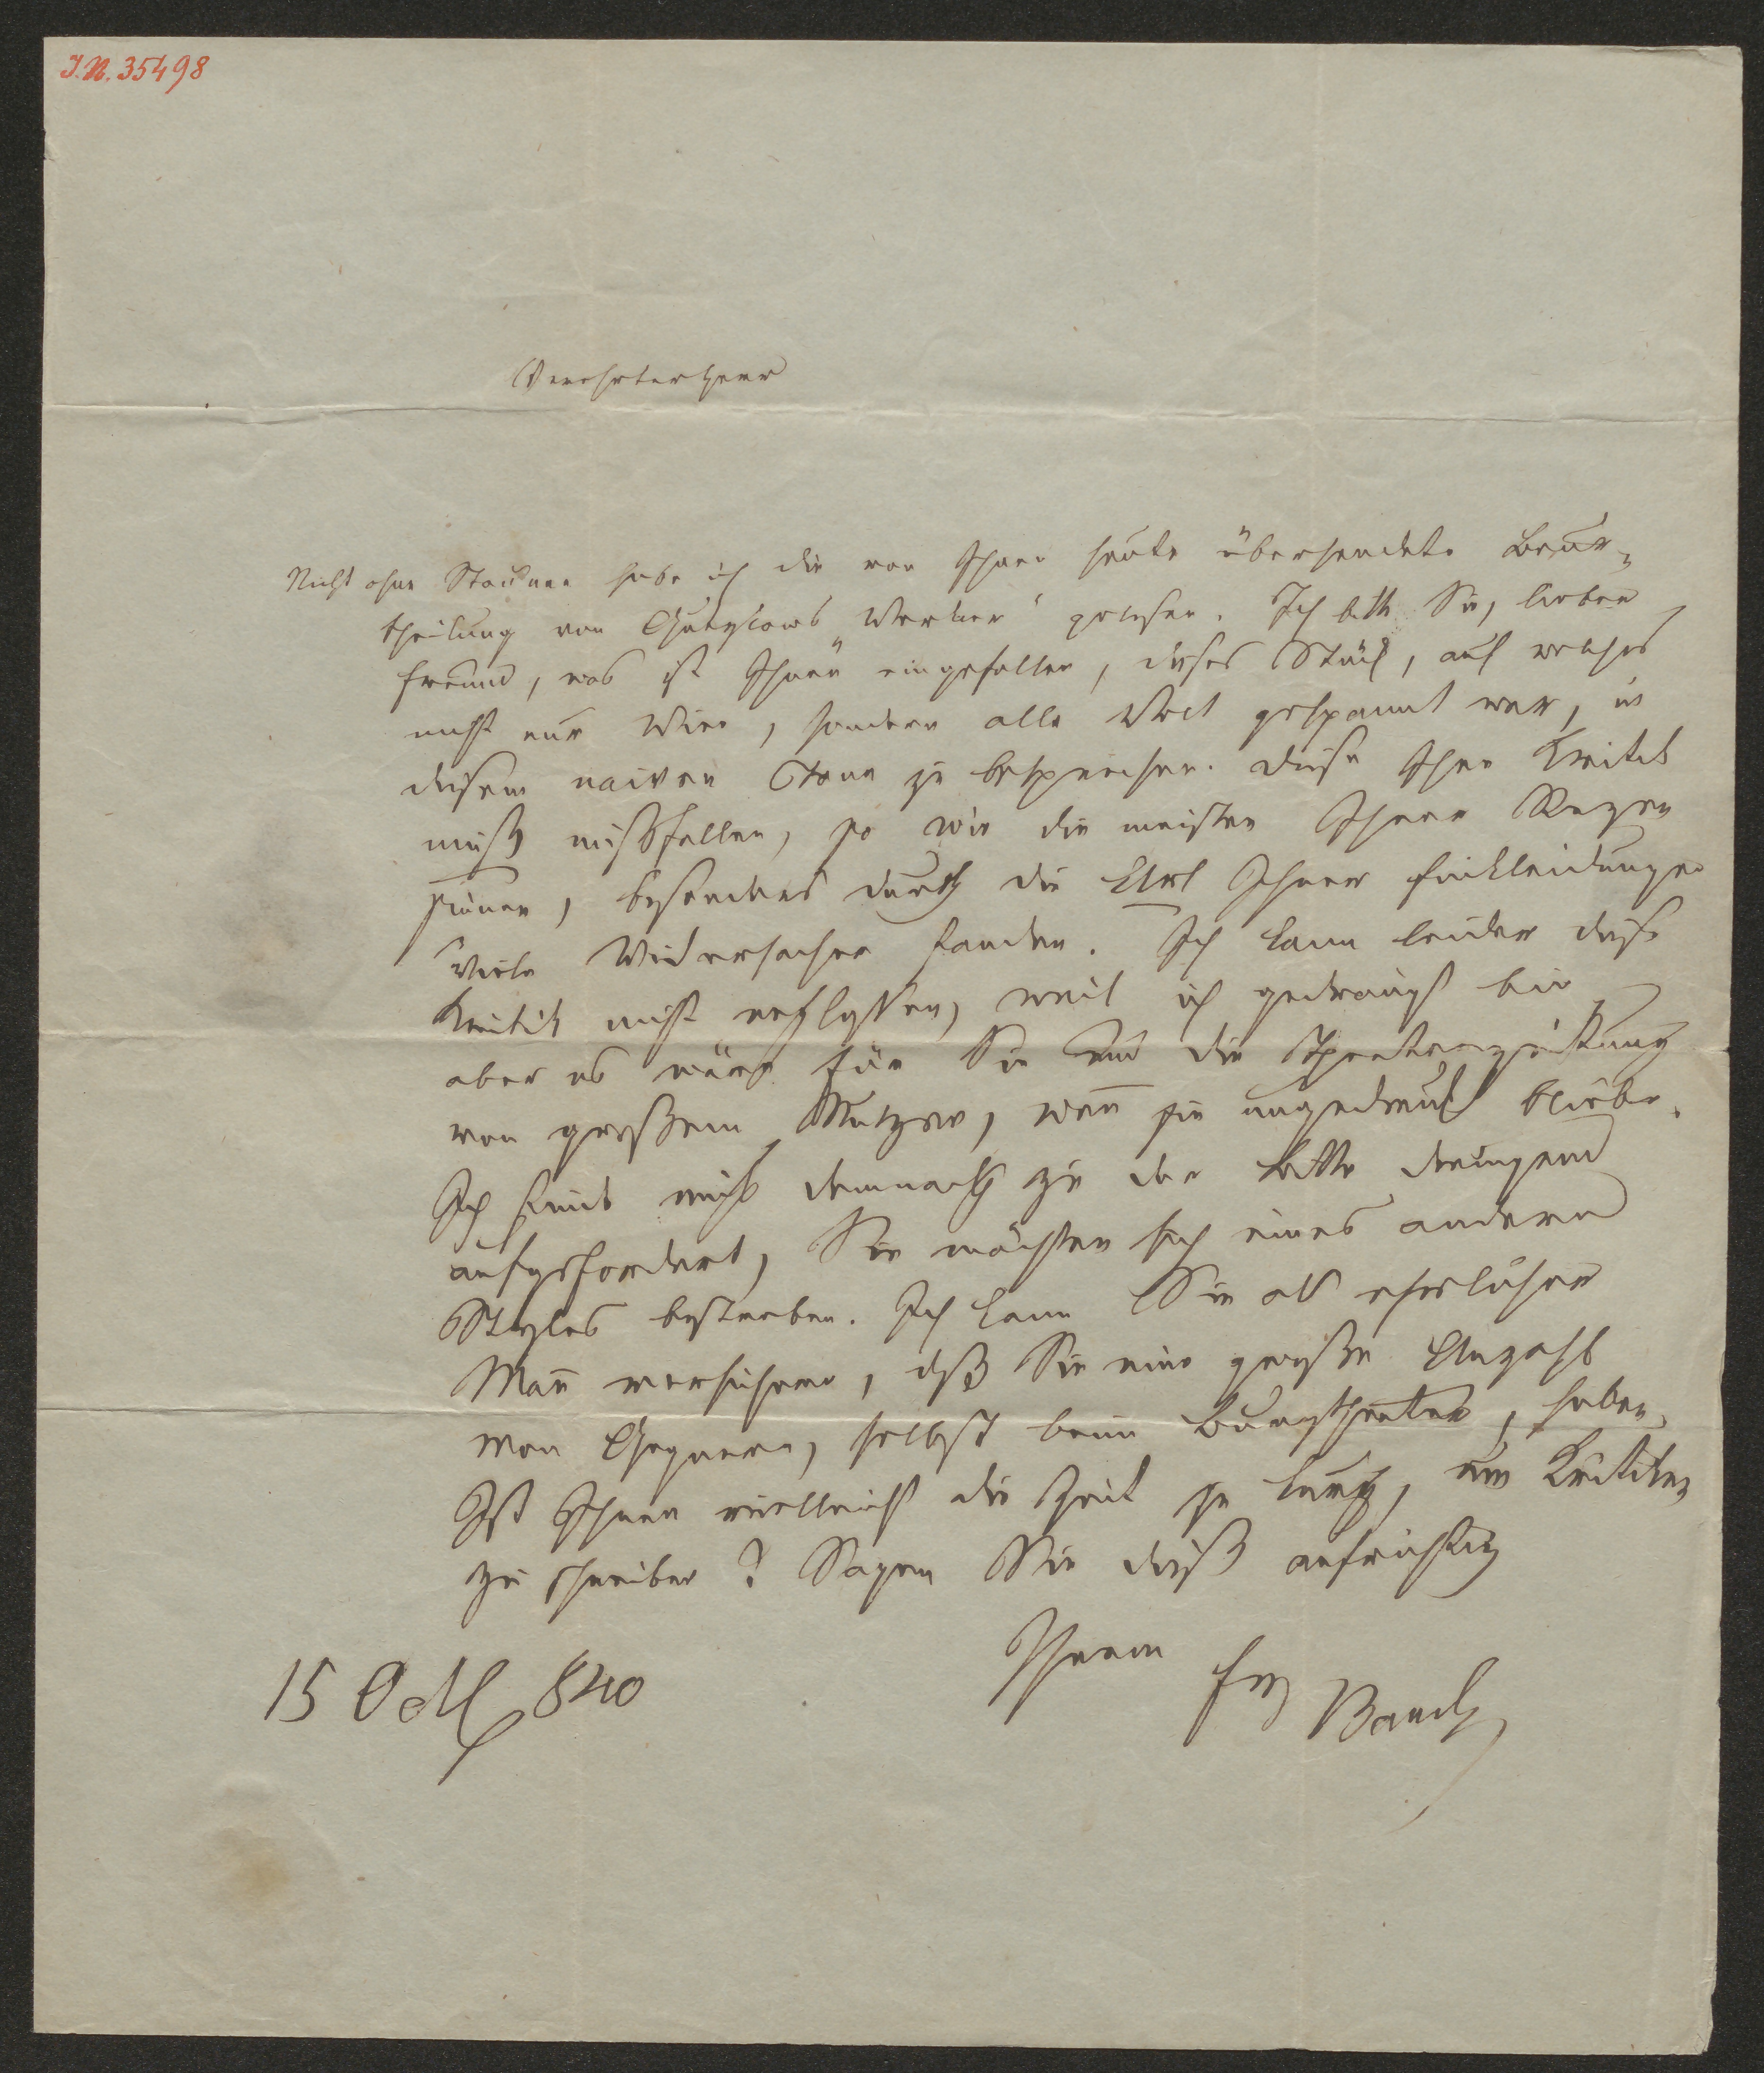 I.N. 35498
Verehrter Herr
Nicht ohne Staunen habe ich die von Ihnen heute übersendete Beur-
theilung von Gutzkows „Werner“ gelesen. Ich bitte Sie, lieber
Freund, was ist Ihnen eingefallen, dieses Stück, auf welches
nicht nur Wien, sondern alle Welt gespannt war, in
diesem naiven Tone zu besprechen. Diese Ihre Kritik
muß mißfallen, so wie die meisten Ihrer Rezen
sionen, besonders durch die Art Ihrer Einkleidungen
viele Widersacher fanden. Ich kann leider diese
Kritik nicht weglassen, weil ich gedrängt bin
aber es wäre für Sie und die Theaterzeitung
von großem Nutzen, wen̄ sie ungedruckt bliebe.
Ich finde mich demnach zu der Bitte dringend
aufgefordert, Sie möchten sich eines andern
Styles bestreben. Ich kann Sie als ehrlicher
Man̄ versichern, dß Sie eine große Anzahl
von Gegnern, selbst beim Burgtheater, haben.
Ist Ihnen vielleicht die Zeit zu kurz, um Kritiken
zu schreiben? Sagen Sie dieß aufrichtig
Ihrem
15 Oct 840